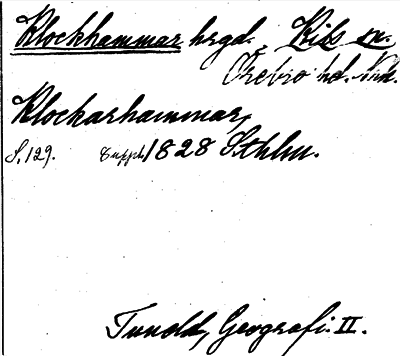 Klockhammar hrgd. Kils sn.
Örebro hd. Närk.
Klockarhammar,
S. 129. Uppl. 1828 Sthlm.
Tuneld, Geografi. II.